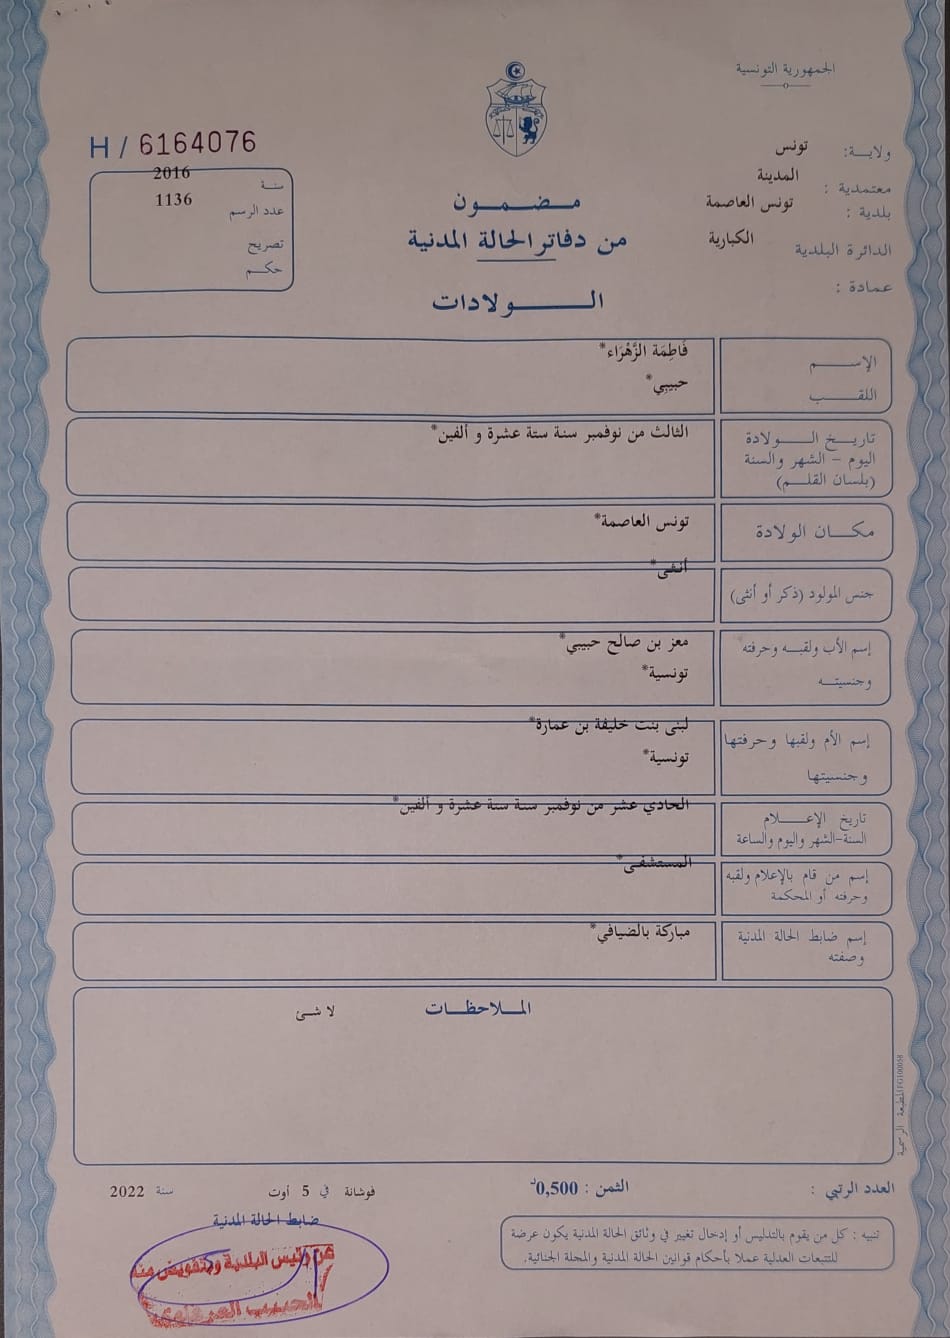 الجمهورية التونسية
H / 6164076
ولاية: تونس
معتمدية : المدينة
بلدية : تونس العاصمة
الدائرة البلدية الكبارية
عمادة :
سنة 2016
عدد الرسم 1136
تصريح
حكم
مضمون
من دفاتر الحالة المدنية
الولادات
الإسم فَاطِمَة الزَّهْرَاء*
اللقب حبيبي*
تاريخ الولادة
اليوم - الشهر والسنة
(بلسان القلم)
الثالث من نوفمبر سنة ستة عشرة و ألفين*
مكان الولادة تونس العاصمة*
جنس المولود (ذكر أو أنثى) أنثى*
إسم الأب ولقبه وحرفته
وجنسيته
معز بن صالح حبيبي*
تونسية*
إسم الأم ولقبها وحرفتها
وجنسيتها
لبنى بنت خليفة بن عمارة*
تونسية*
تاريخ الإعلام
السنة-الشهر واليوم والساعة
الحادي عشر من نوفمبر سنة ستة عشرة و ألفين*
إسم من قام بالإعلام ولقبه
وحرفته أو المحكمة
المستشفى*
إسم ضابط الحالة المدنية
وصفته
مباركة بالضيافي*
الملاحظات
لا شئ
المطبعة الرسمية FG100058
العدد الرتبي :
الثمن : 0,500د
فوشانة في 5 أوت سنة 2022
ضابط الحالة المدنية
تنبيه : كل من يقوم بالتدليس أو إدخال تغيير في وثائق الحالة المدنية يكون عرضة
للتتبعات العدلية عملا بأحكام قوانين الحالة المدنية والمجلة الجنائية.
عن رئيس البلدية وبتفويض منه
الحبيب